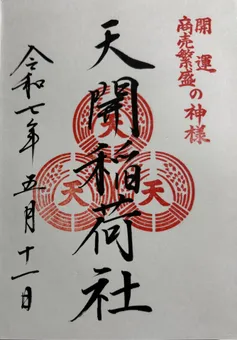 開運
商売繁盛の神様
天開稲荷社
令和七年五月十一日
天
天